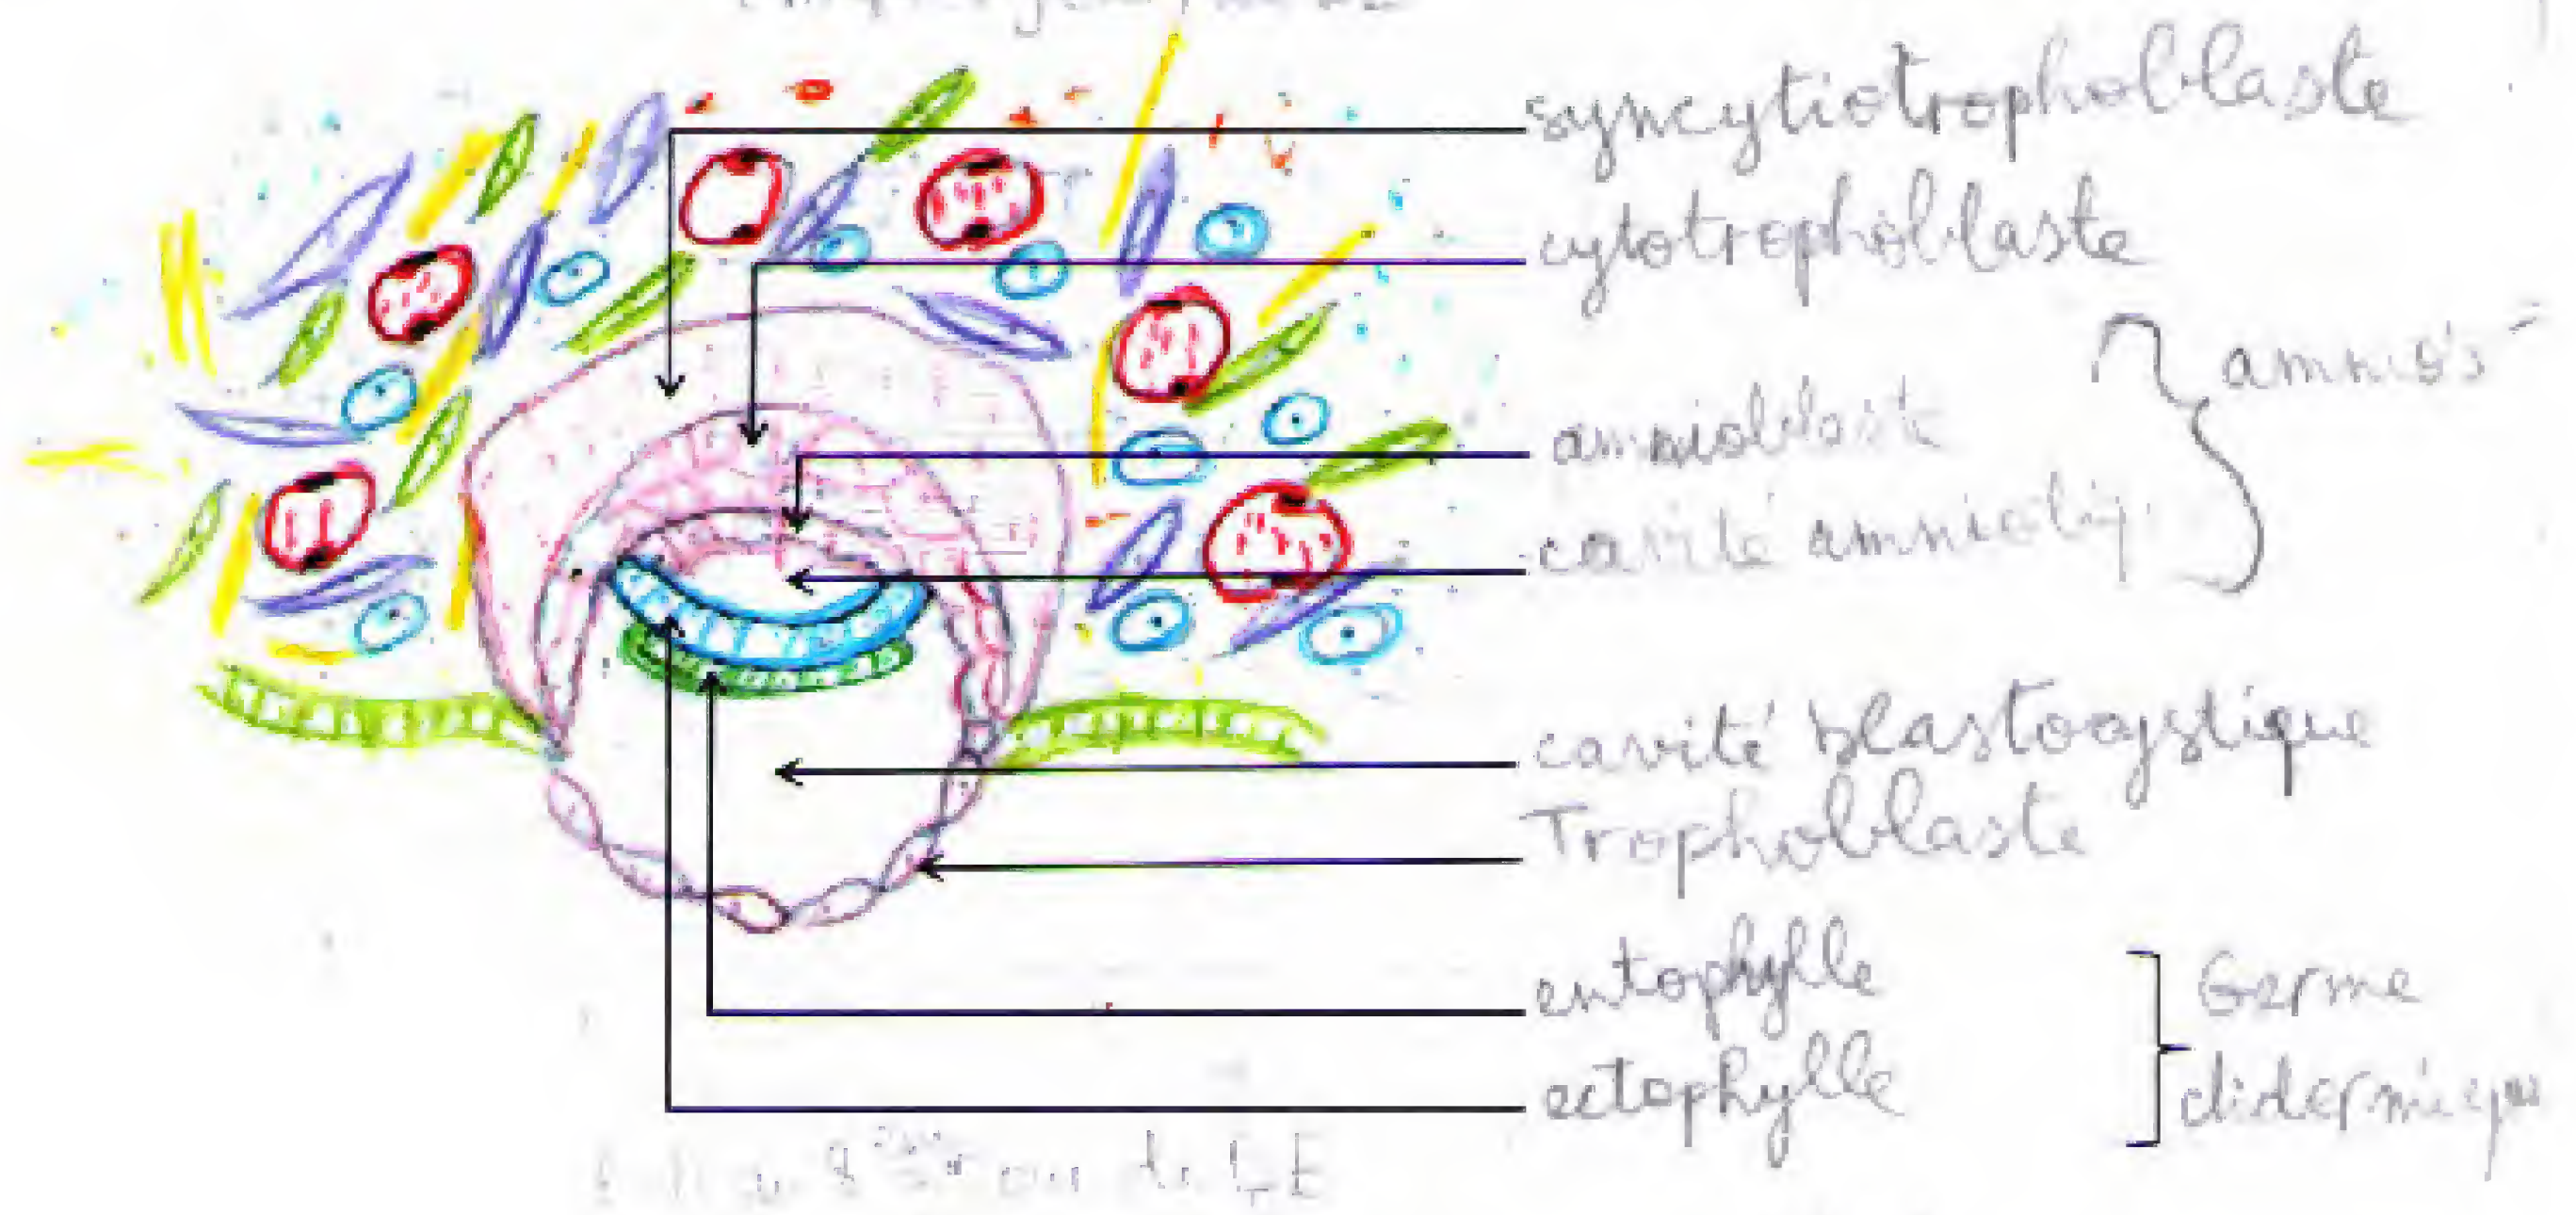 syncytiotrophoblaste
cytotrophoblaste
amnios
amnioblaste
cavité amniotiq
cavité blastocystique
Trophoblaste
entophylle
Germe
ectophylle
didermique